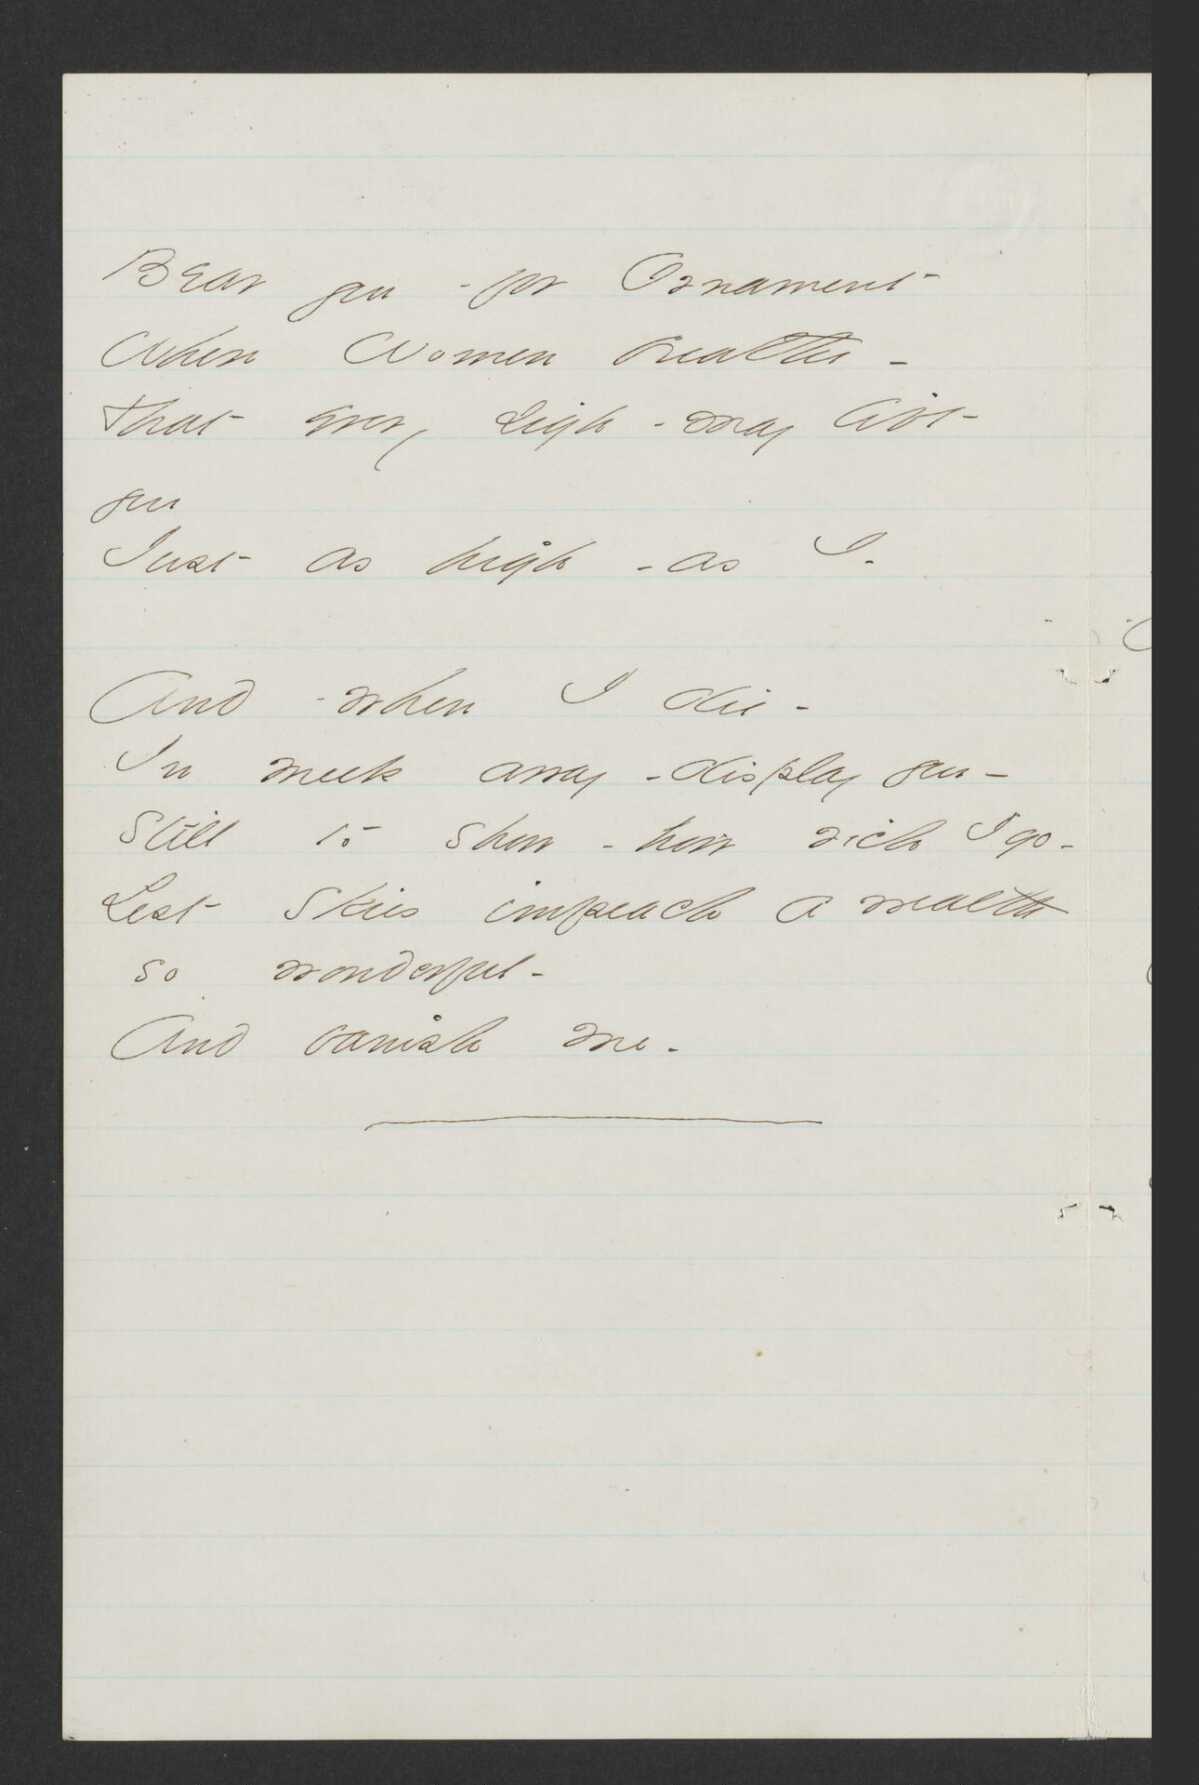 Bear you - for Ornament
When Women breathe -
That every Sigh - may lift
you
Just as high - as I -
And - when I die -
In meek array - display you -
Still to show - how rich I go -
Lest Skies impeach a wealth
so wonderful -
And banish me -